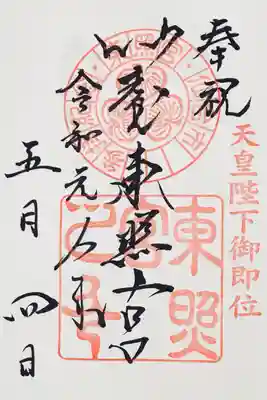 奉祝
天皇陛下御即位
仙臺東照宮
東照宮
令和元年
五月四日